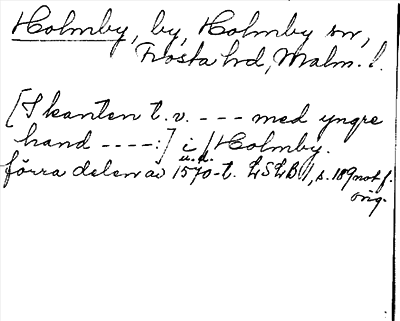 Holmby, by, Holmby sn,
Frosta hd, Malm. l.
[I kanten t.v. --- med yngre
hand ----:] i Holmby.
u.d.
förra delen av 1570-t. LSLB 1, s. 189 not f.
orig.